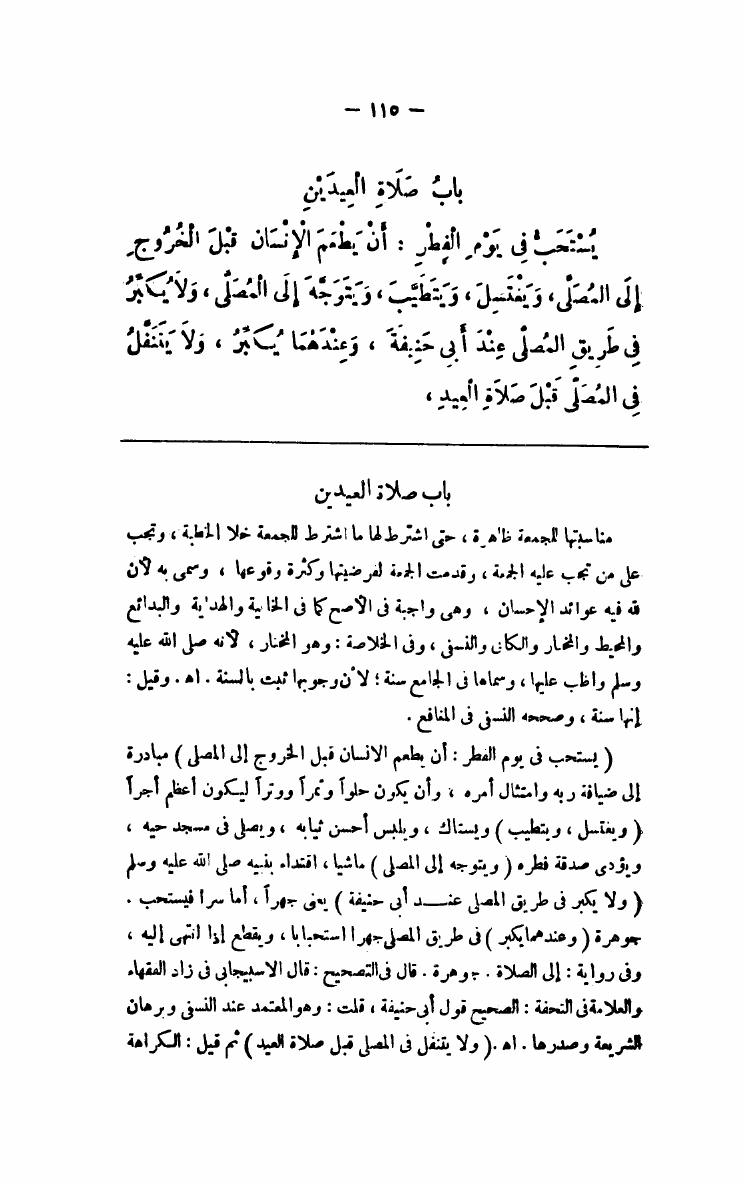 — ١١٥ —
بابُ صَلَاةِ الْعِيدَيْنِ
يُسْتَحَبُّ فِى يَوْمِ الْفِطْرِ : أَنْ يَطْعَمَ الْإِنْسَان قَبْلَ الْخُرُوجِ
إِلَى المُصَلَّى، وَيَغْتَسِلَ، وَيَتَطَيَّبَ، وَيَتَوَجَّهَ إِلَى الْمُصَلَّى، وَلاَ يُكَبِّرُ
فِى طَرِيقِ المُصَلَّى عِنْدَ أَبِى حَنِيفَةَ ، وَعِنْدَهُمَا يُكَبِّرُ ، وَلاَ يَتَنَفَّلُ
فِى المُصَلَّى قَبْلَ صَلاَةِ الْعِيدِ ،
باب صلاة العيدين
مناسبتها للجمعة ظاهرة ، حتى اشترط لها ما اشترط للجمعة خلا الخطبة ، وتجب
على من تجب عليه الجمعة ، وقدمت الجمعة لفرضيتها وكثرة وقوعها ، وسمى به لأن
لله فيه عوائد الإحسان ، وهى واجبة فى الأصح كما فى الخانية والهداية والبدائع
والمحيط والمختار والكافى والنسفى ، وفى الخلاصة : وهو المختار ، لأنه صلى الله عليه
وسلم واظب عليها ، وسماها فى الجامع سنة ؛ لأن وجوبها ثبت بالسنة . اه . وقيل :
إنها سنة ، وصححه النسفى فى المنافع .
( يستحب فى يوم الفطر : أن يطعم الانسان قبل الخروج إلى المصلى ) مبادرة
إلى ضيافة ربه وامتثال أمره ، وأن يكون حلواً وتمراً ووتراً ليكون أعظم أجراً
( ويغتسل ، ويتطيب ) ويستاك ، ويلبس أحسن ثيابه ، ويصلى فى مسجد حيه ،
ويؤدى صدقة فطره ( ويتوجه إلى المصلى ) ماشيا ، اقتداء بنبيه صلى الله عليه وسلم
( ولا يكبر فى طريق المصلى عند أبى حنيفة ) يعنى جهراً ، أما سرا فيستحب .
جوهرة ( وعندهما يكبر ) فى طريق المصلى جهرا استحبابا ، ويقطع إذا انتهى إليه ،
وفى رواية : إلى الصلاة . جوهرة . قال فى التصحيح : قال الاسبيجابى فى زاد الفقهاء
والعلامة فى التحفة : الصحيح قول أبى حنيفة ، قلت : وهو المعتمد عند النسفى وبرهان
الشريعة وصدرها . اه .( ولا يتنفل فى المصلى قبل صلاة العيد ) ثم قيل : الكراهة